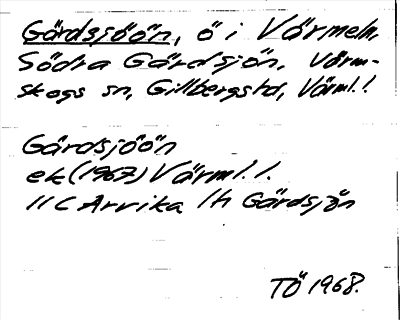 Gårdsjöön, ö i Värmeln,
Södra Gårdsjön, Värm-
skogs sn, Gillbergs hd, Värml. l.
Gårdsjöön
ek (1967) Värml. l.
11 C Arvika 1h Gårdsjön
TÖ 1968.